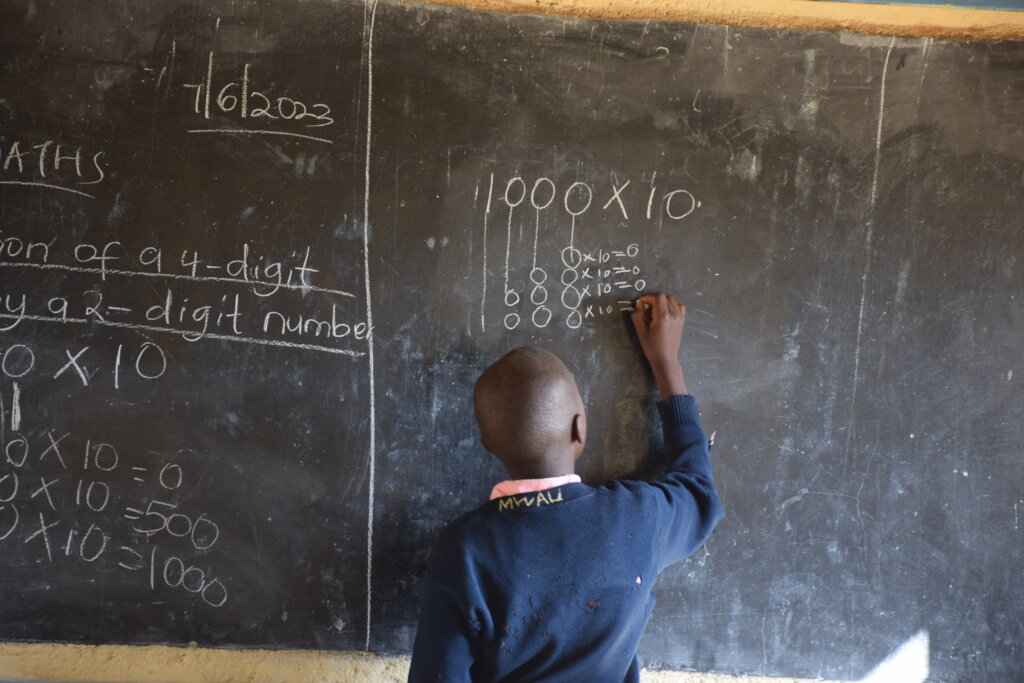 7/6/2023
MATHS
ion of a 4-digit
by a 2-digit number
0 X 10
0 X 10 = 0
0 X 10 = 500
0 X 10 = 1000
1000 X 10
0 x 10 = 0
0 0 x 10 = 0
0 0 0 x 10 = 0
0 0 0 x 10 =
MWALI